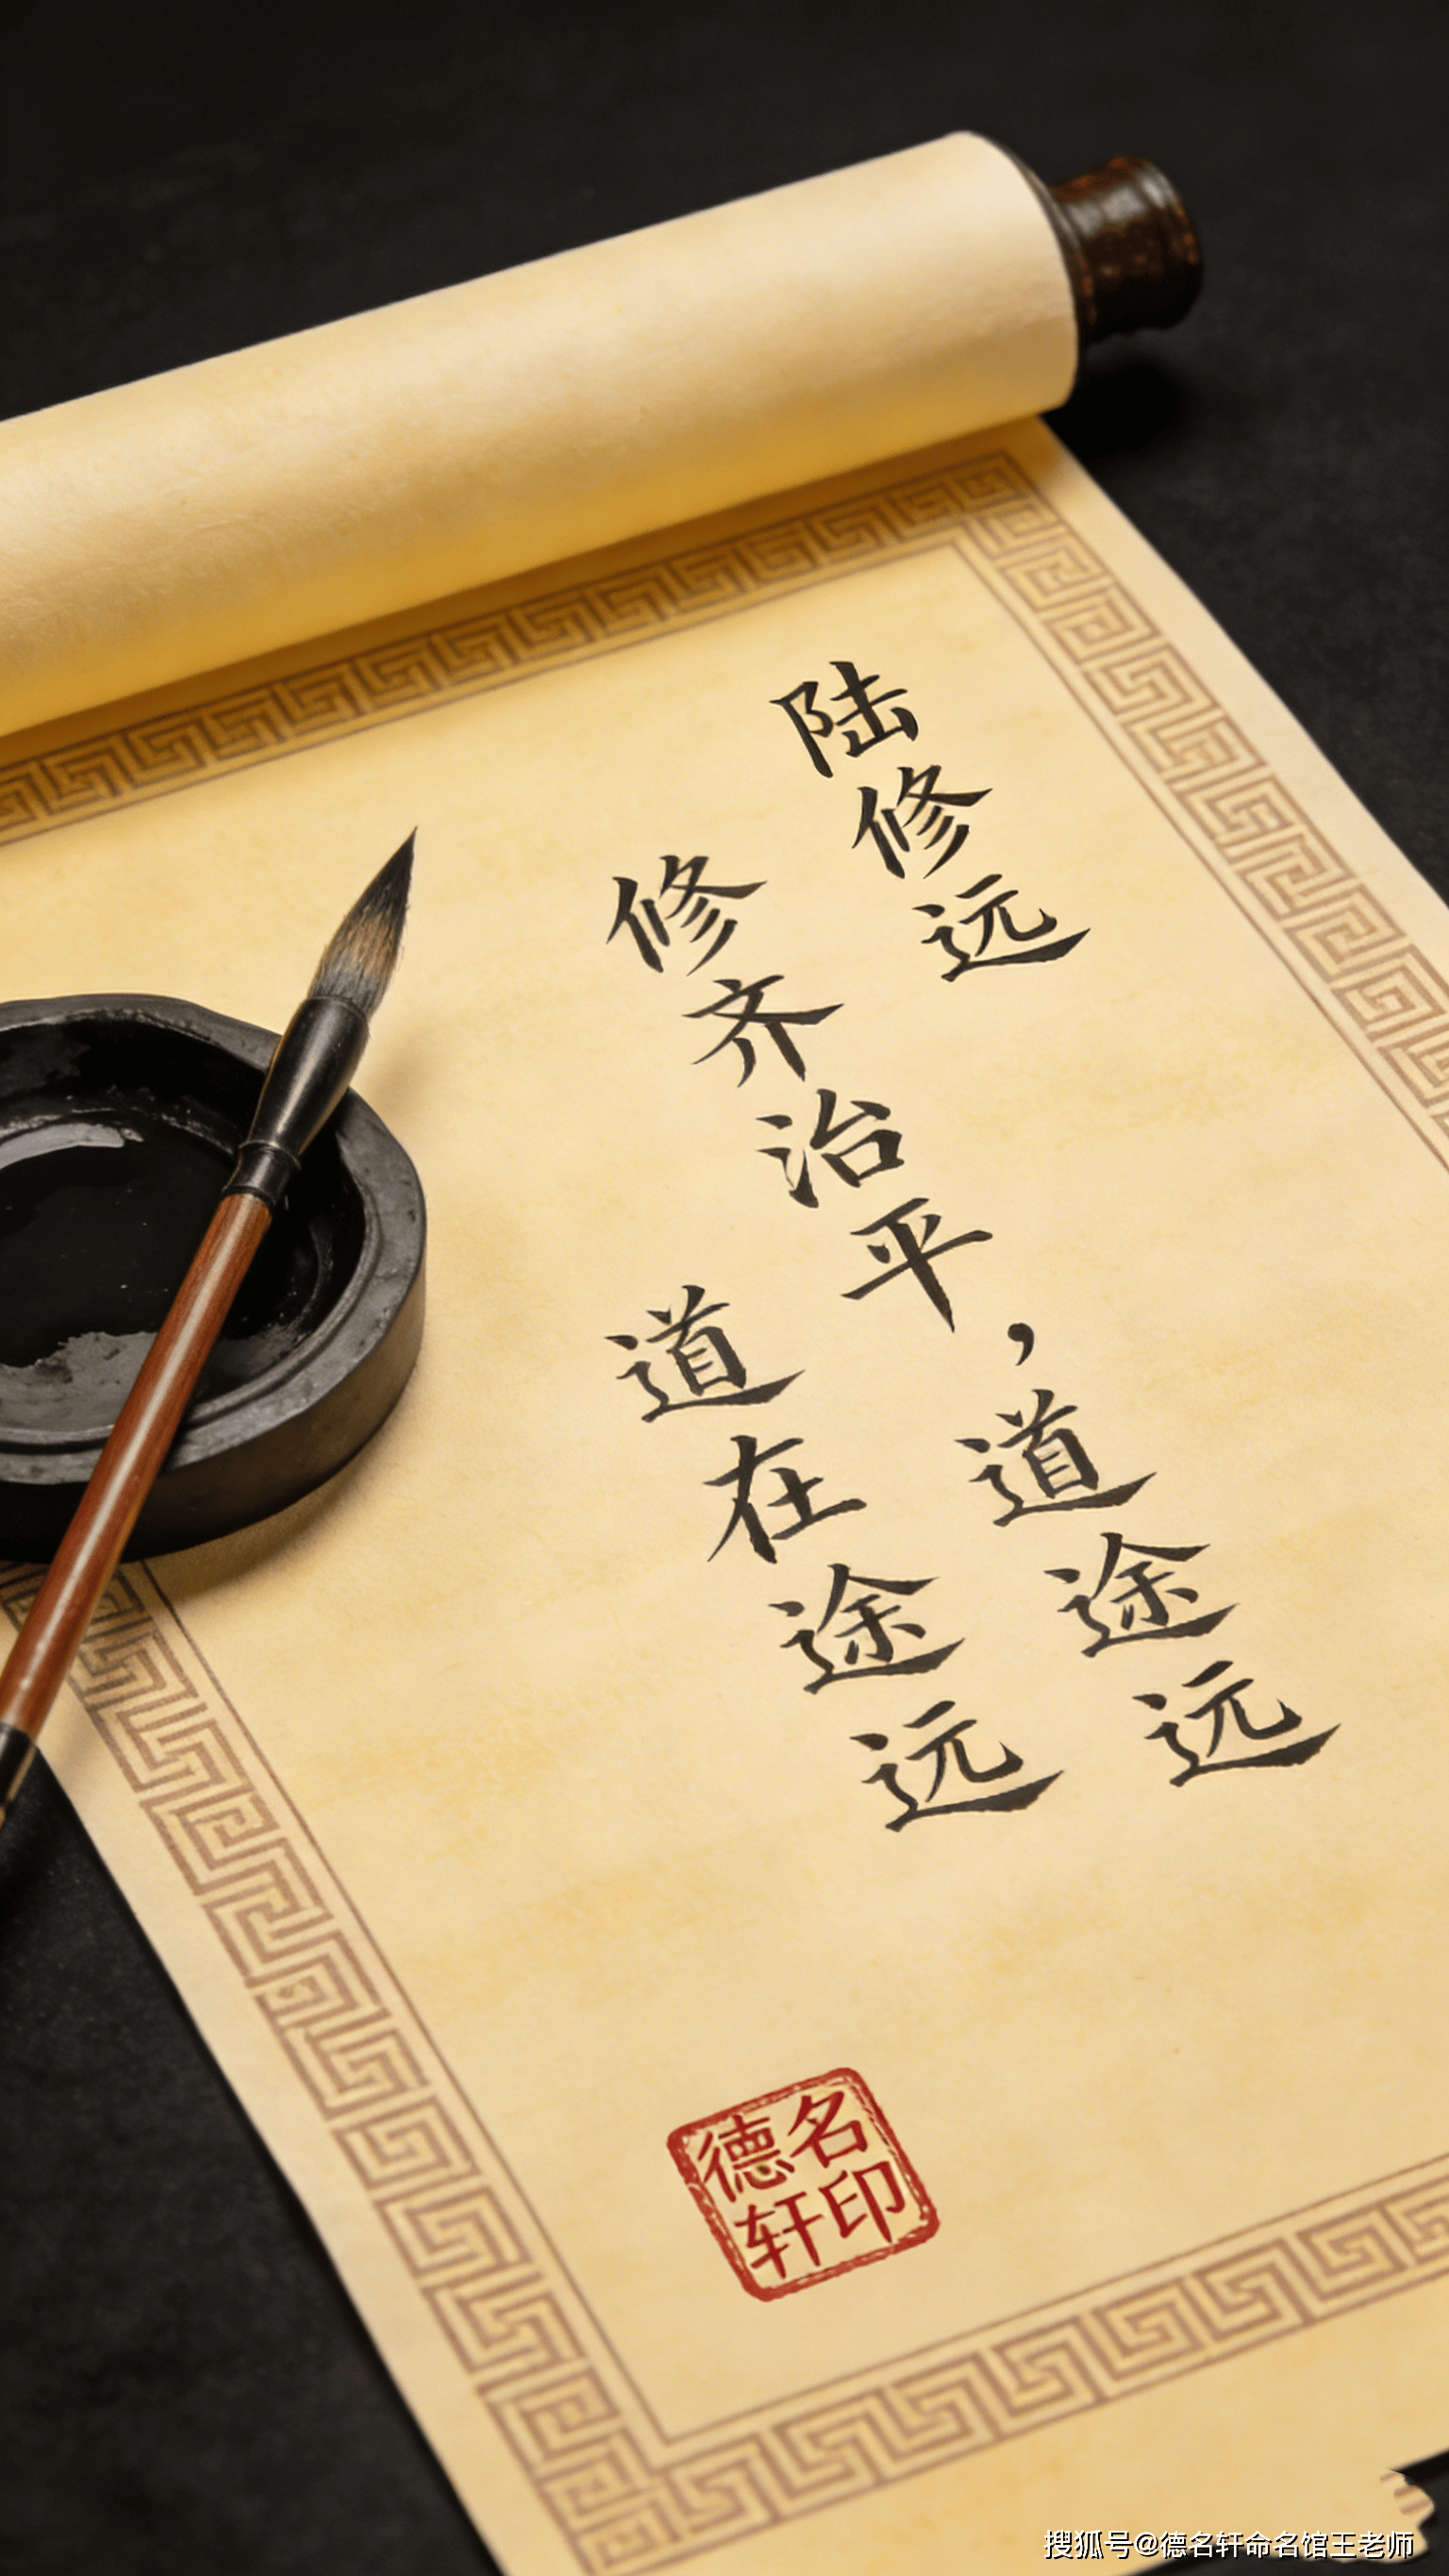 陆修远
修齐治平，道途远
道在途远
德名
轩印
搜狐号@德名轩命名馆王老师